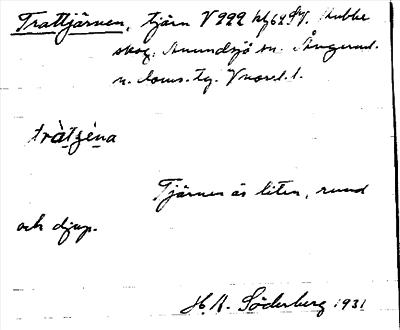 Trattjärnen, tjärn V 222 kf 62 Stubbe
skog. Anundsjö sn. Ångerml.
n. doms. tg. V norrl. l.
tràtjɛ̀na
Tjärnen är liten, rund
och djup.
H. A. Söderberg 1931